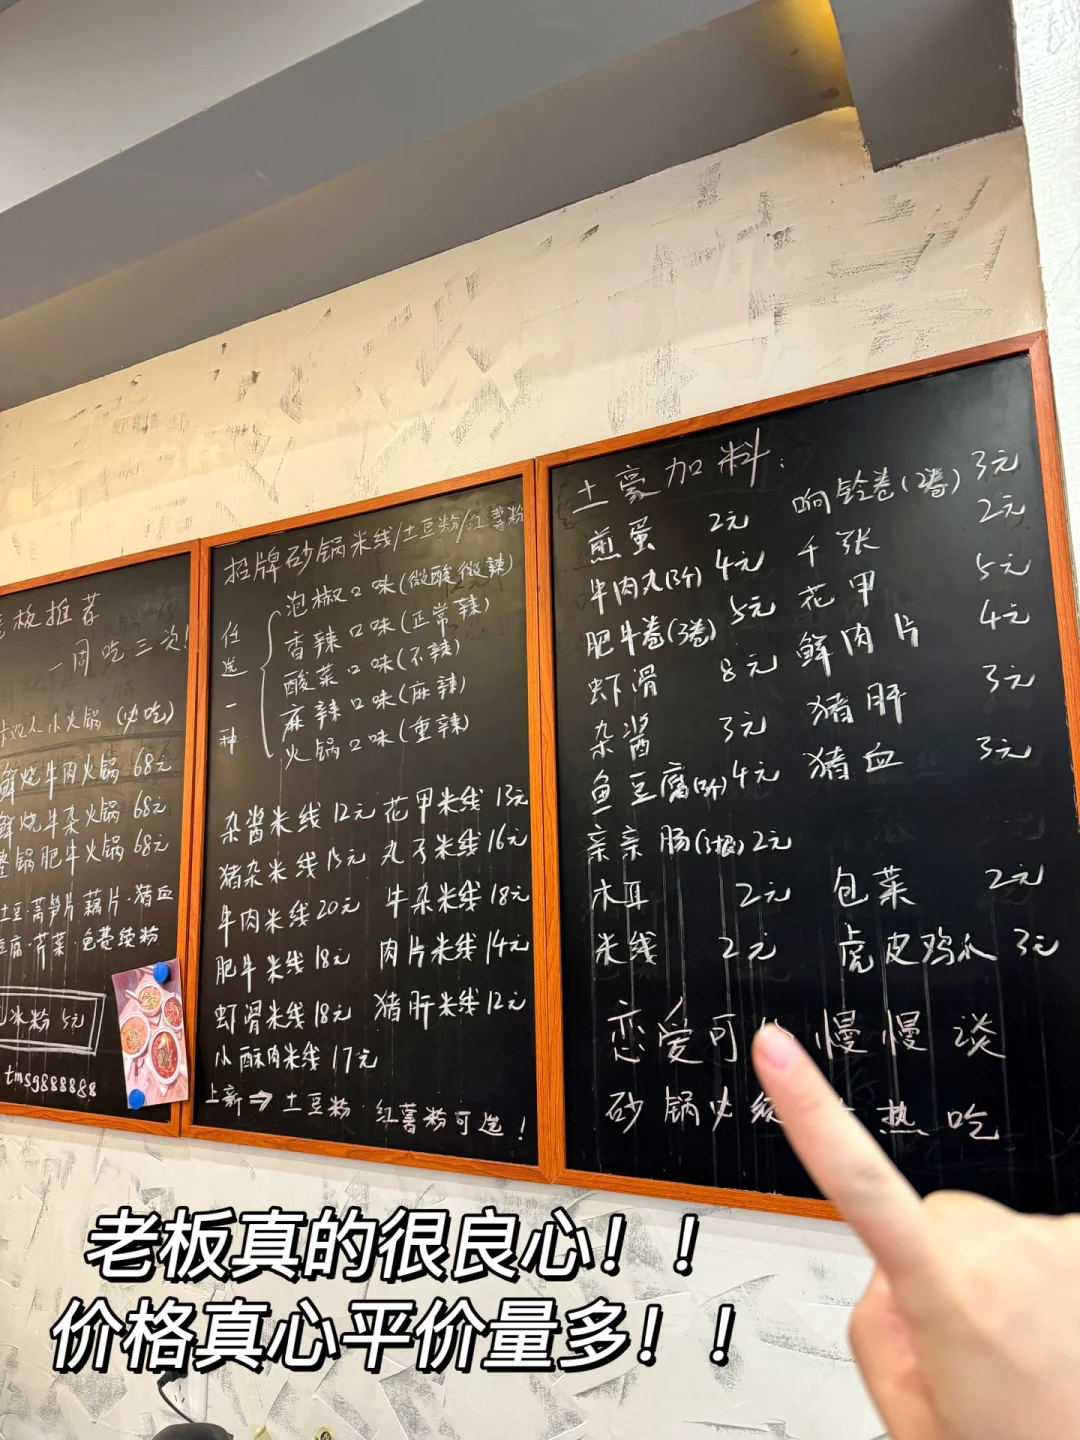 老板推荐
一周吃三次！
双人小火锅(必吃)
鲜烧牛肉火锅 68元
鲜烧牛杂火锅 68元
锅肥牛火锅 68元
土豆·莴笋片·藕片·猪血
豆腐·芹菜·免费续粉
冰粉 5元
tmsg888888
招牌砂锅米线/土豆粉/红薯粉
任选一种
泡椒口味(微酸微辣)
香辣口味(正常辣)
酸菜口味(不辣)
麻辣口味(麻辣)
火锅口味(重辣)
杂酱米线 12元 花甲米线 13元
猪杂米线 15元 丸子米线 16元
牛肉米线 20元 牛杂米线 18元
肥牛米线 18元 肉片米线 14元
虾滑米线 18元 猪肝米线 12元
小酥肉米线 17元
上新⇒土豆粉 红薯粉可选！
土豪加料：
煎蛋 2元 响铃卷(2卷) 3元
牛肉丸(3个) 4元 千张 2元
肥牛卷(3卷) 5元 花甲 5元
虾滑 8元 鲜肉片 4元
杂酱 3元 猪肝 3元
鱼豆腐 4元 猪血 3元
亲亲肠 2元
木耳 2元 包菜 2元
米线 2元 虎皮鸡爪 3元
恋爱可 慢慢谈
砂锅必 热吃
老板真的很良心！！
价格真心平价量多！！